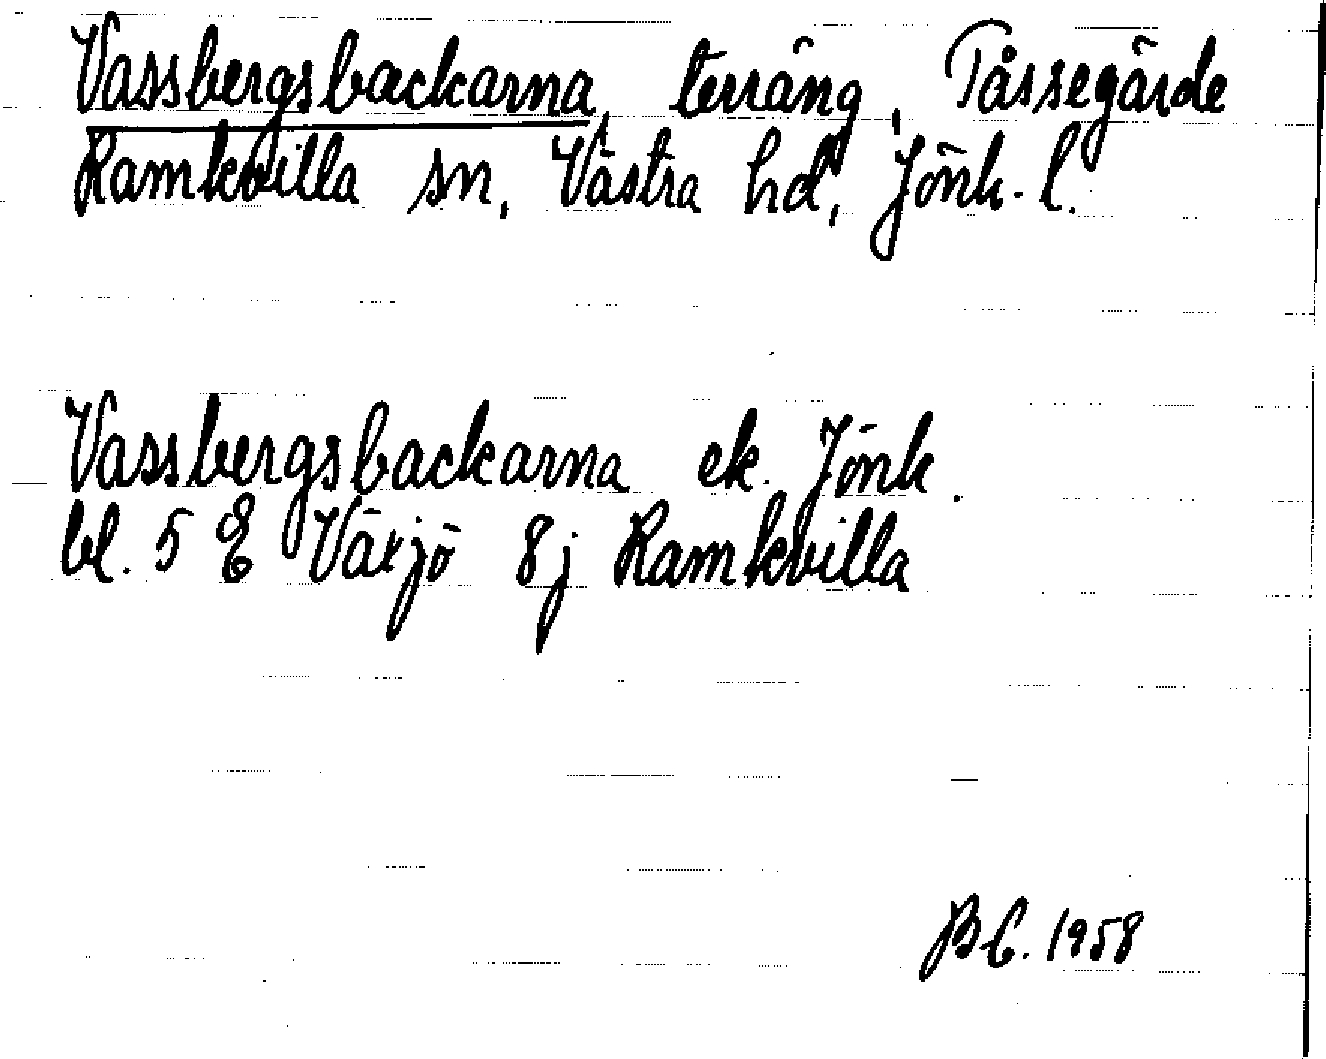 Vassbergsbackarna, terräng, Påssegärde
Ramkvilla sn, Västra hd, Jönk. l.
Vassbergsbackarna ek. Jönk.
bl. 5 E Växjö 8j Ramkvilla
B C. 1958